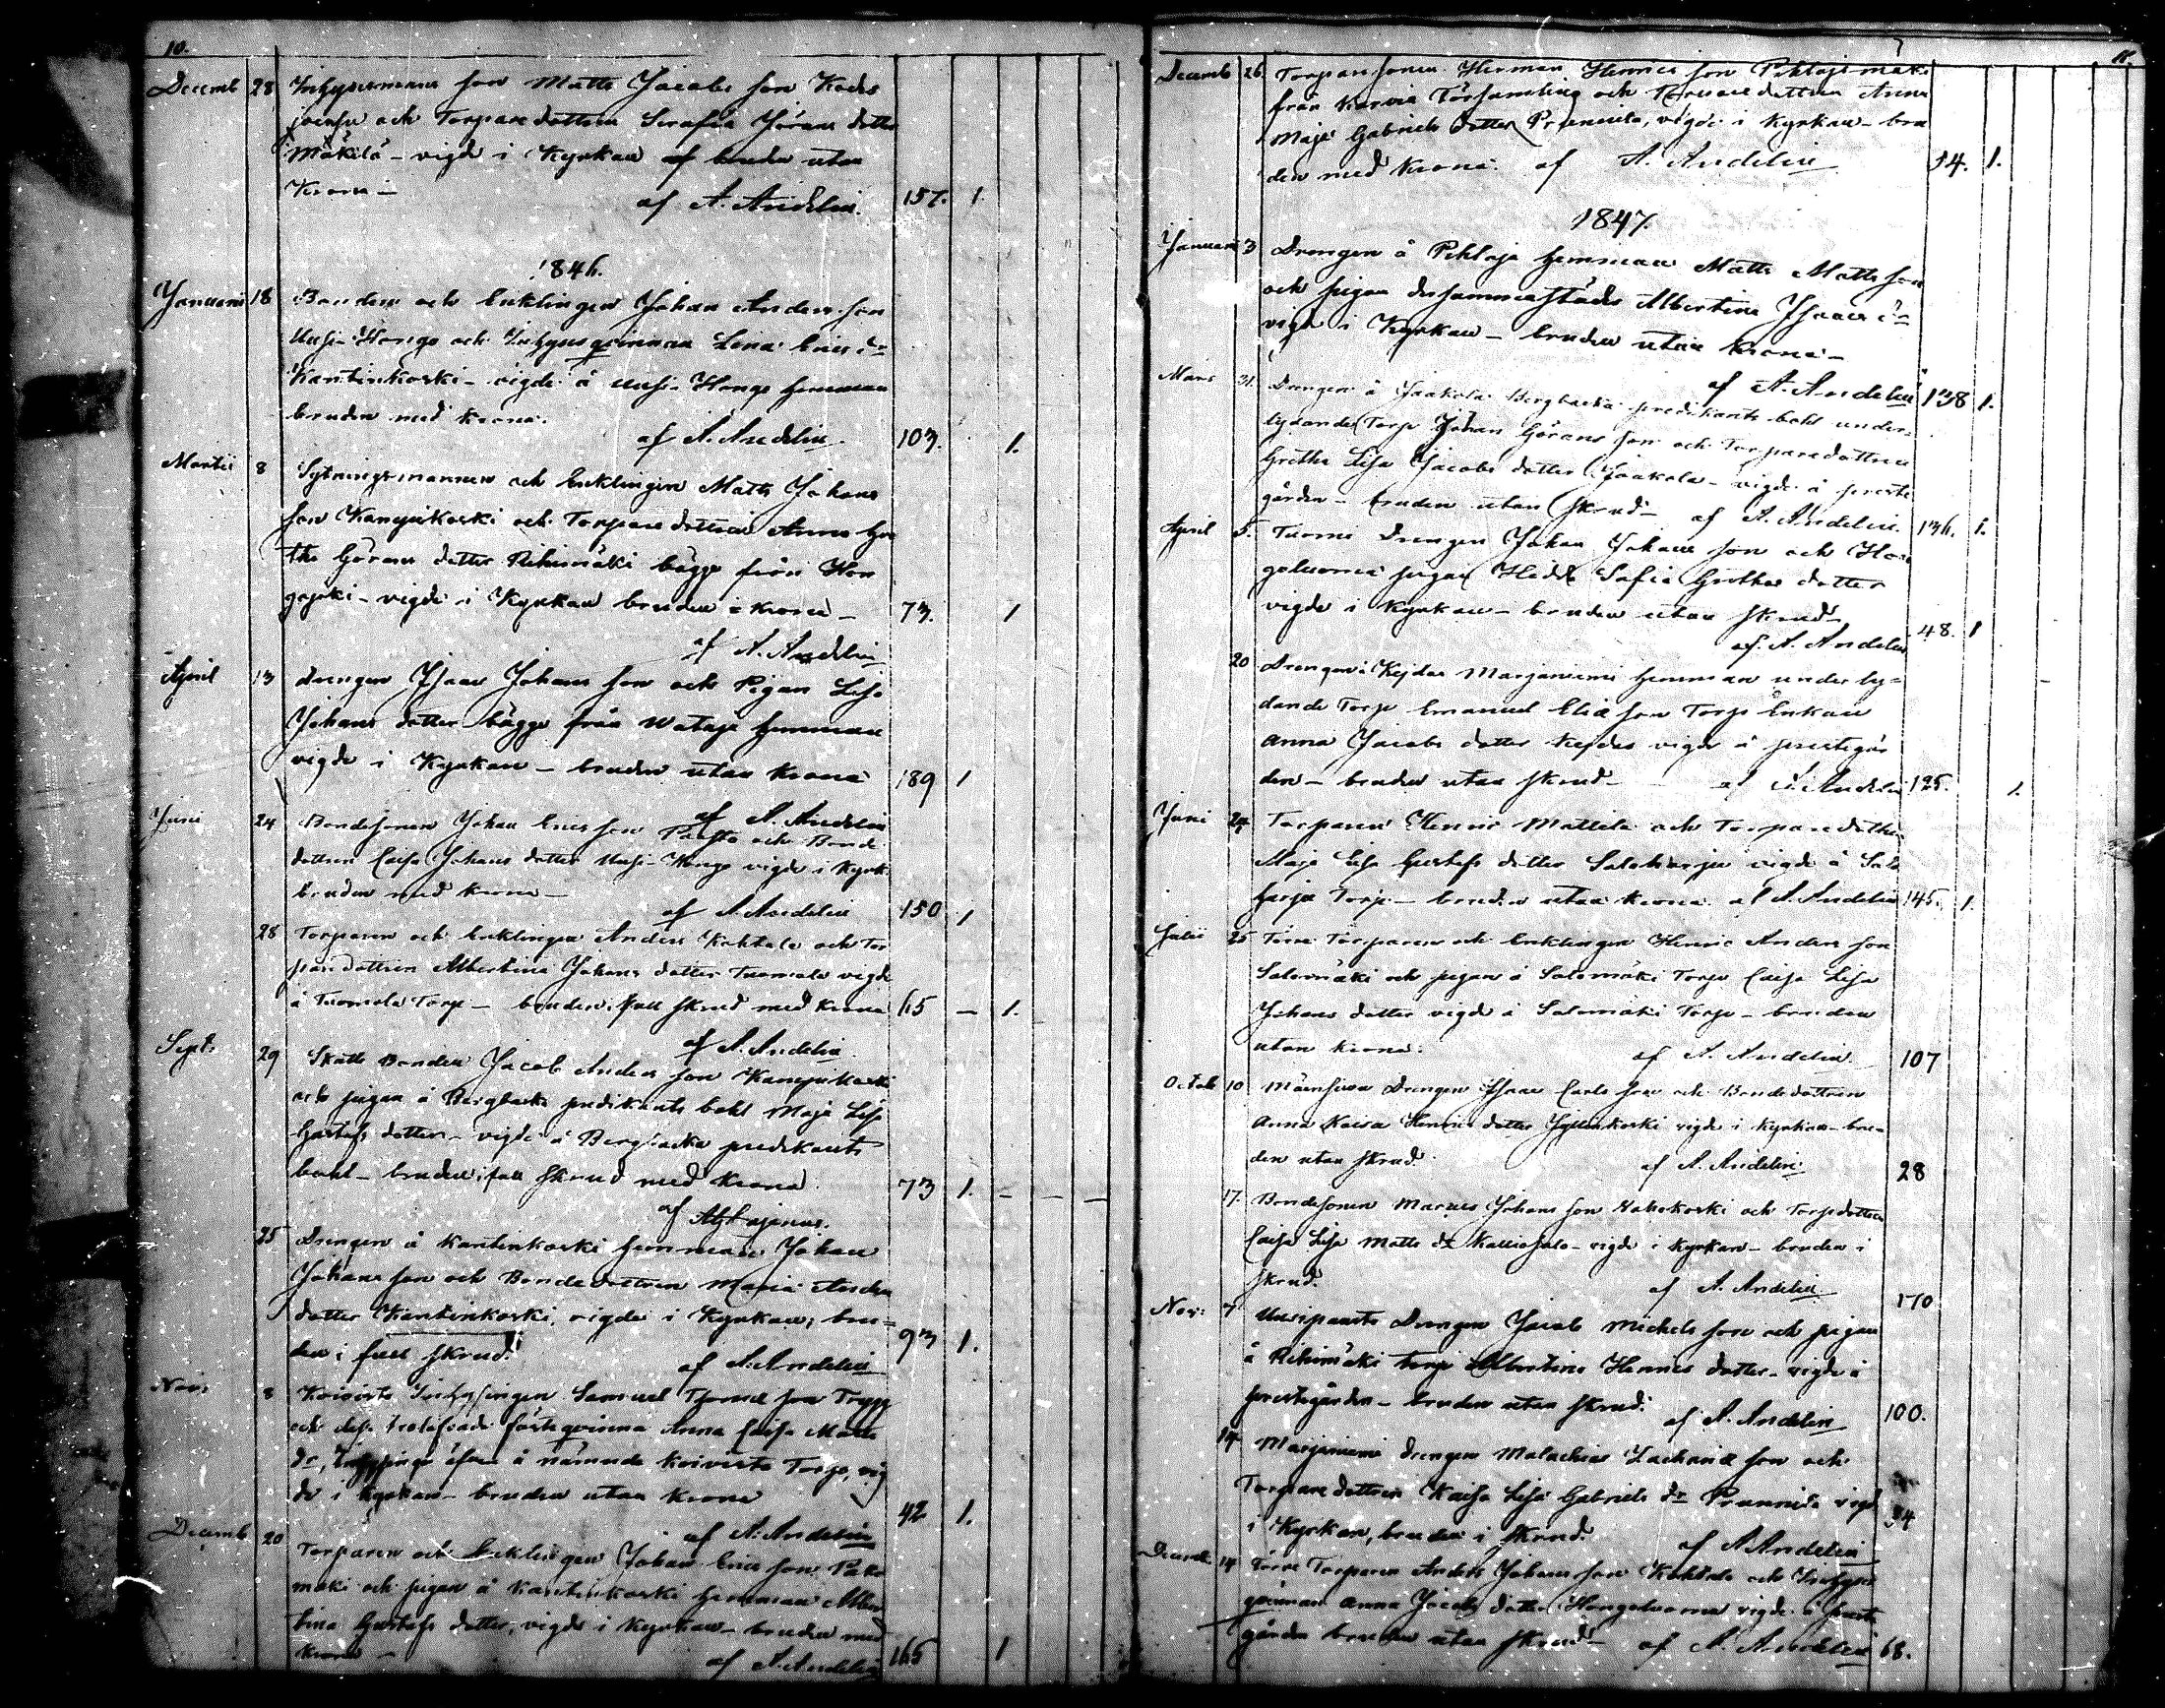 10.
Decemb 28 Inhysesmans son Matts Jacobs son Kodes
jocasu och Torpare dottren Serafia Jörans dotter
Mäkilä - vigde i Kyrkan af bruden utan
Krona -
af A. Andelin. 157. 1.
1846.
Januari 18 Bonden och Enklingen Johan Anders son
Uusi-Hongo och Inhysesqvinnan Lena Erics dr
Kantinkoski - vigde å Uusi-Hongo hemman
bruden med krona.
af A. Andelin 103. 1.
Martii 8 Sytningsmannen och Enklingen Matts Johans
son Kangankoski och Torpare dottren Anna Gre
tha Görans dotter Rihimäki bägge från Hon
gojoki - vigde i Kyrkan bruden i krona - 73. 1
af A. Andelin
April 13 drengen Isaac Johans son och Pigan Lisa
Johans dotter bägge från Wataja hemman
vigde i Kyrkan - bruden utan krona 189 1
af A. Andelin
Juni 24 Bondesonen Johan Erics son och Bonde
dottren Caisa Johans dotter Uusi-Hongo vigde i Kyrk.
bruden med krona -
af A. Andelin 150 1
28 Torparen och Enklingen Anders Kohtala och Tor
paredottren Albertina Johans dotter Tuomola vigde
å Tuomola Torp - bruden i full skrud med krona 65 - 1.
af A. Andelin
Sept. 29 Skatte Bonden Jacob Anders son Kangankoski
och pigan å Bergbacka predikants bohl Maja Lisa
Gustafs dotter - vigde å Bergbacka predikants
bohl - bruden i full skrud med krona 73 1. - - -
af
25 Drengen å Kantinkoski hemman Johan
Johans son och Bondedottren Maria Anders
dotter Kantinkoski, vigde i Kyrkan, bru-
den i full skrud. 93 1.
af A. Andelin
Nov: 8 Koivisto Inhysingen Samuel son Trygg
och dess trolofvade fästeqvinna Anna Caisa Matts
dr, äfven å nämnde Koivisto Torp, vig
de i kyrkan - bruden utan krona 42 1.
af A. Andelin
Decemb 20 Torparen och Enklingen Johan Erics son
mäki och pigan å Kantinkoski hemman Alber
tina Gustafs dotter, vigde i Kyrkan - bruden med
krona - af A. Andelin 165 1
11.
Decemb 26. Torparesonen Herman Henrics son Pihlajamäki
från Karvia Församling och Torparedottren Anna
Maja Gabriels dotter, vigde i Kyrkan - bru
den med krona. af A. Andelin 34. 1.
1847.
Januari 3 Drengen å Pihlaja hemman Matts Matts son
och pigan dersammastädes Albertina Isaacs dr
vigde i Kyrkan - bruden utan krona -
af A. Andelin 138 1.
Mars 31. Drengen å Jaakola Bergbacka predikants bohl under-
lydande Torp Johan Görans son och Torparedottren
Gretha Lisa Jacobs dotter Jaakola - vigde å preste
gården - bruden utan skrud - af A. Andelin. 136. 1.
April 5. Tuomi Drengen Johan Johans son och Hon
goluoma pigan Hedda Sofia Grethas dotter
vigde i kyrkan - bruden utan skrud -
af A. Andelin 48. 1
20 Drengen i Kejdas Marjaniemi hemman underly-
dande Torp Emanuel Eliæ son Torp Enkan
Anna Jacobs dotter Kejdas vigde å prestegår
den - bruden utan skrud - af A. Andelin 125. 1.
Juni 24 Torparen Henric Mattila och Torparedottren
Maja Lisa Gustafs dotter Saloharju vigde å Salo
harju Torp - bruden utan krona. af A. Andelin 145. 1.
Julii 25 Förre Torparen och Enklingen Henric Anders son
Salomäki och pigan å Salomäki Torp Caisa Lisa
Johans dotter vigde å Salomäki Torp - bruden
utan krona: af A. Andelin 107
Octob 10 Drengen Isaac Carls son och Bondedottren
Anna Kaisa Henrics dotter Jyllinkoski vigde i kyrkan - bru-
den utan skrud. af A. Andelin 28
17. Bondesonen Marcus Johans son Hahokoski och Torpdottren
Caisa Lisa Matts dr Kalliosalo - vigde i kyrkan - bruden i
skrud. af A. Andelin 170
Nov: 7 Uusipaasto Drengen Jacob Michels son och pigan
å Rihimäki torp Albertina Henrics dotter - vigde å
prestegården - bruden utan skrud. af A. Andelin 100.
14 Marjaniemi drengen Malachias Zachariæ son och
Torpare dottren Kaisa Lisa Gabriels dr vigde
i Kyrkan, bruden i skrud. af A. Andelin 34
Decemb 14 Förre Torparen Anders Johans son Kohtala och Inhyses
qvinnan Anna Jacobs dotter Hongoluoma vigde å Preste
gården bruden utan skrud - af A. Andelin 68.